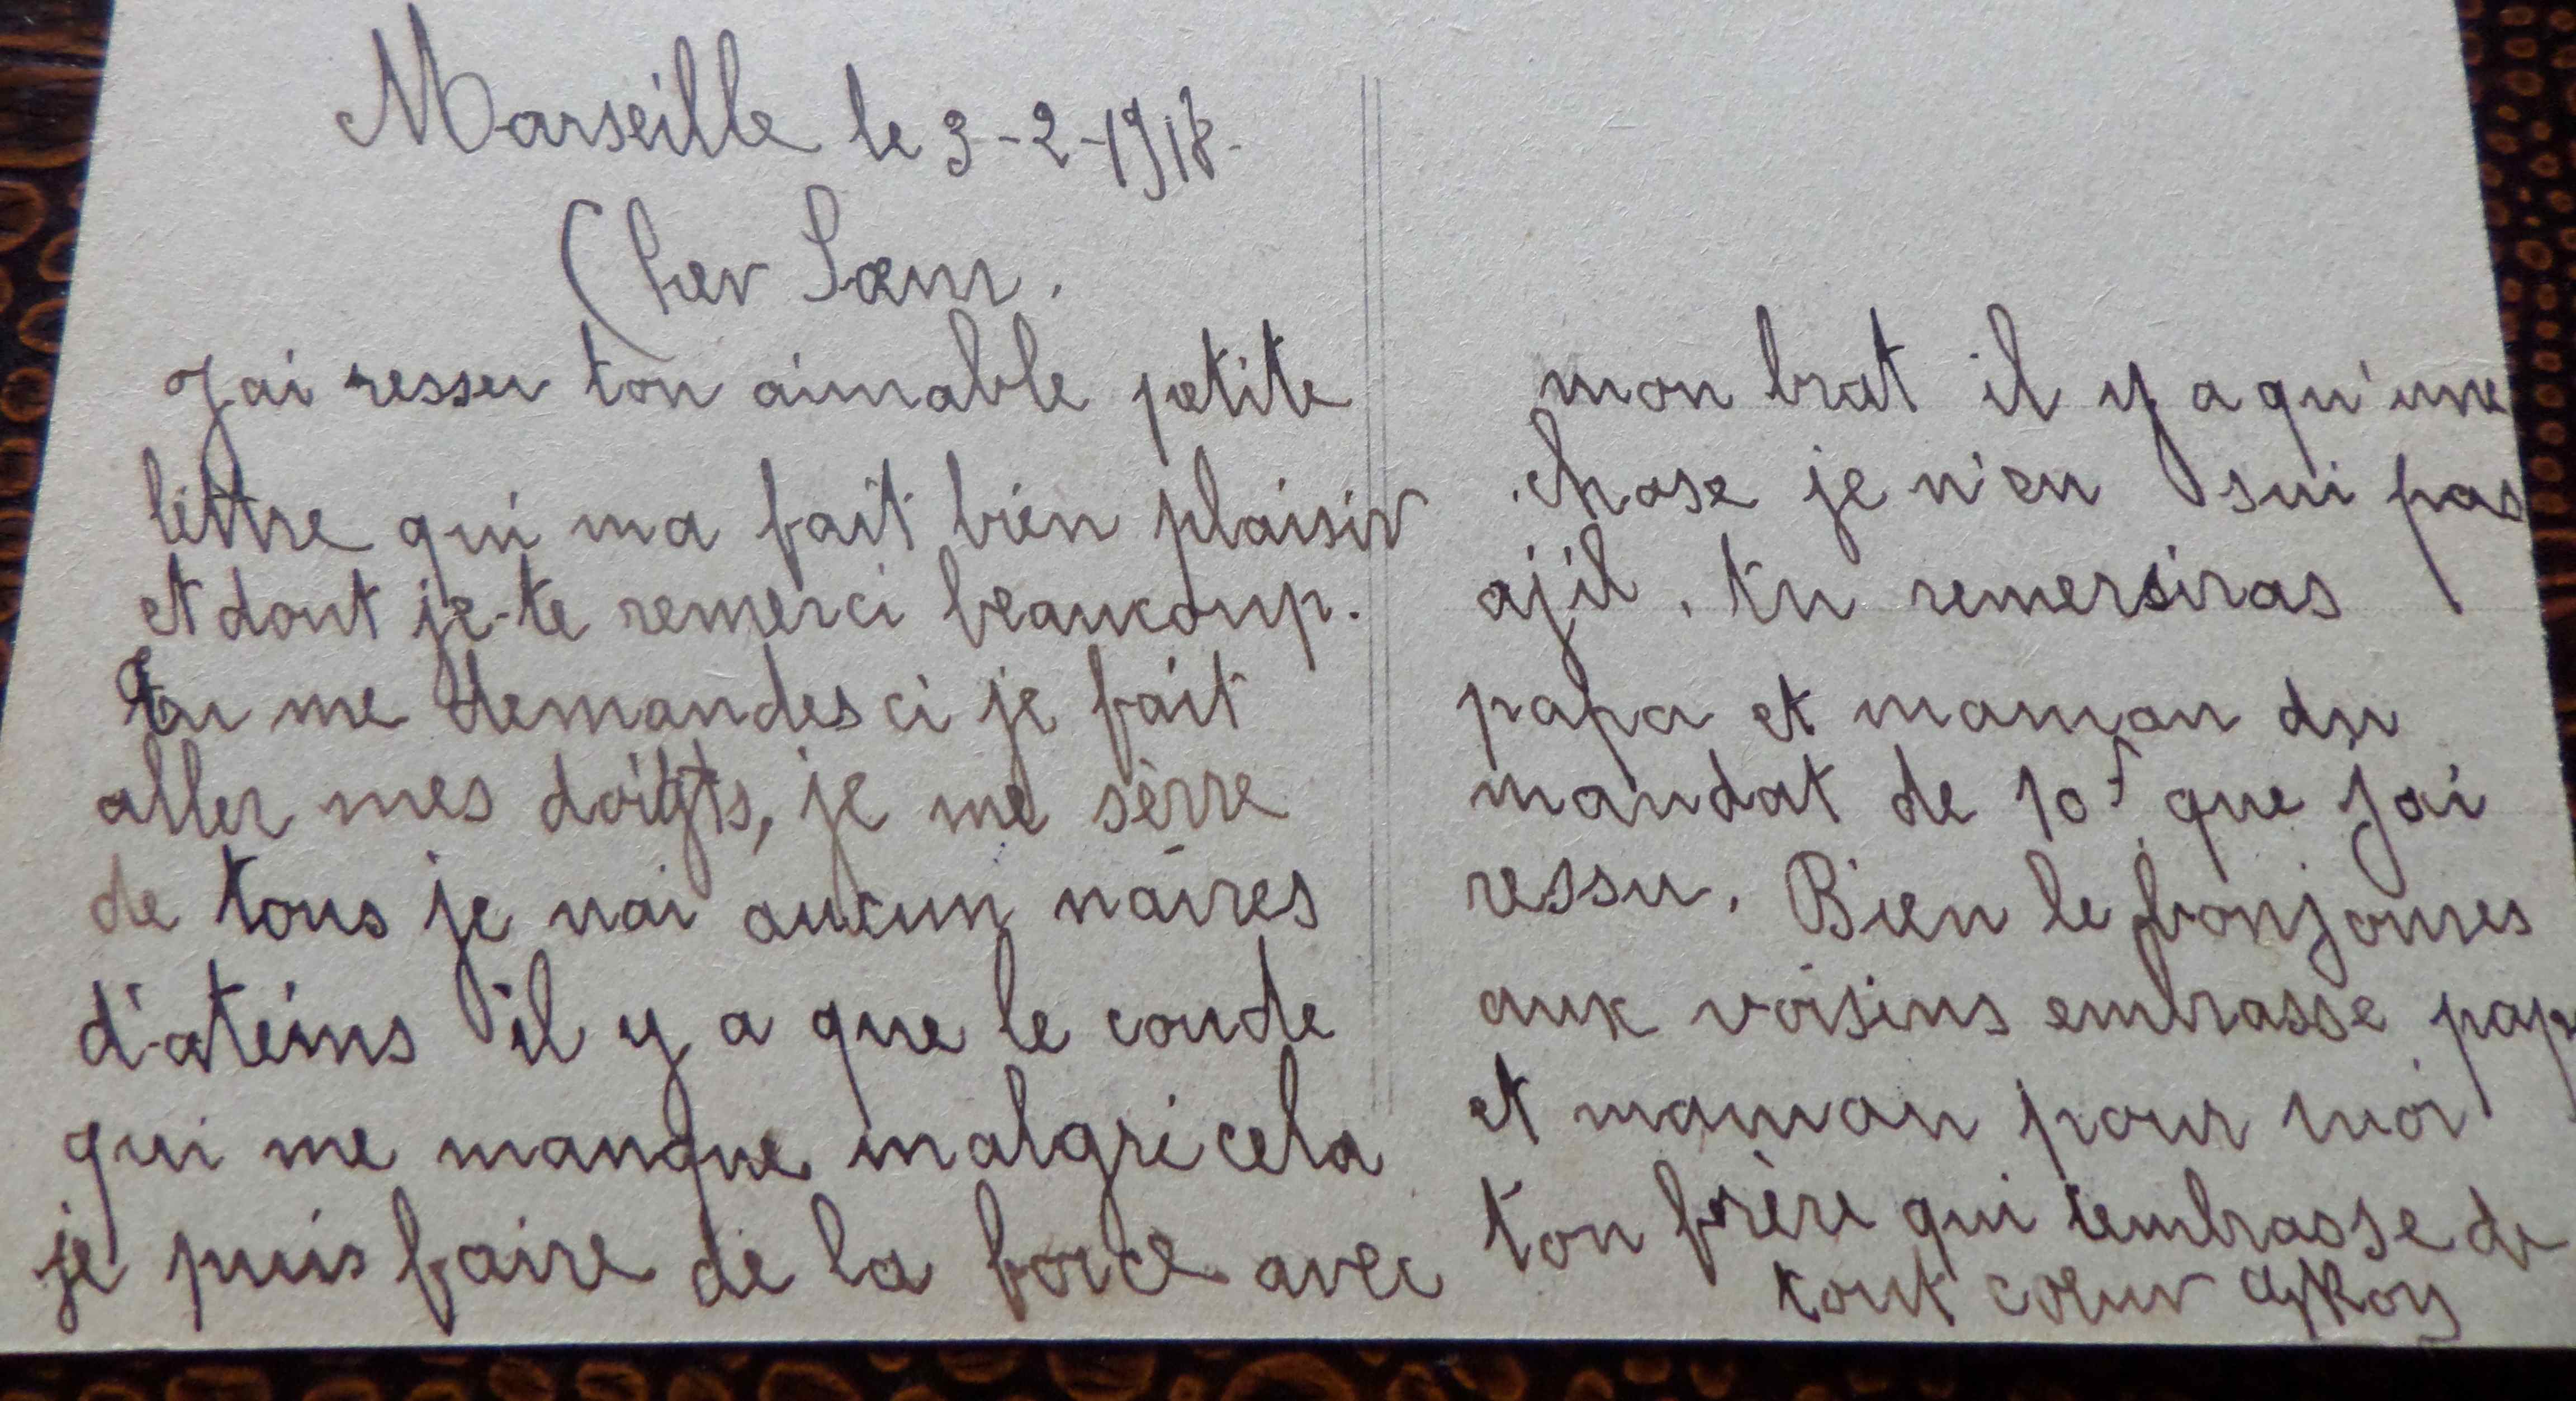 Marseille le 3-2-1918.
Cher Sœur.
J'ai resseu ton aimable petite
lettre qui ma fait bien plaisir
et dont je-te remerci beaucoup.
Tu me demandes ci je fait
aller mes doigts, je me serre
de tous je nai aucun naires
d'ateins il y a que le coude
qui me manque malgré cela
je puis faire de la force avec
mon brat il y a qu'une
chose je n'en sui pas
ajil. tu remersiras
papa et maman du
mandat de 10f que j'ai
ressu. Bien le bonjoures
aux voisins embrasse pap
et maman pour moi
ton frère qui tembrasse de
tout cœur